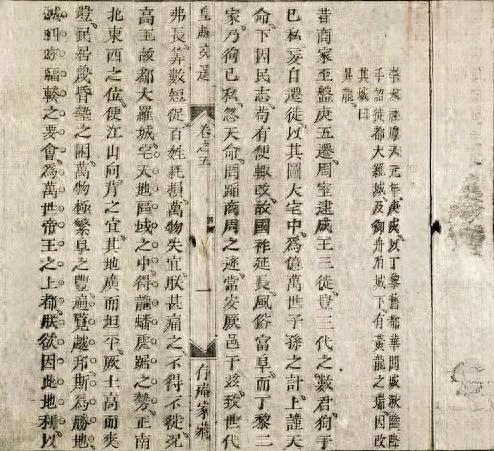 元年庚戌以丁黎舊都華閭城湫隘降
手詔徙都大羅城及御舟泊城下有黃龍之瑞因改
其城曰
昇龍
昔商家至盤庚五遷周室逮成王三徙豈三代之數君狥于
己私妄自遷徙以其圖大宅中爲億萬世子孫之計上謹天
命下因民志苟有便輒改故國祚延長風俗富阜而丁黎二
家乃狥己私忽天命罔蹈商周之迹常安厥邑于兹致世代
皇越文選 卷之五 一 存庵家藏
弗長算數短促百姓耗損萬物失宜朕甚痛之不得不徙况
高王故都大羅城宅天地區域之中得龍蟠虎踞之勢正南
北東西之位便江山向背之宜其地廣而坦平厥土高而爽
塏民居蔑昏墊之困萬物極繁阜之豐遍覽越邦斯為勝地
誠四方輻輳之要會爲萬世帝王之上都朕欲因此地利以